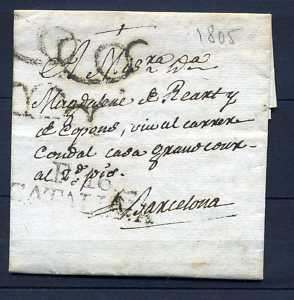 1805
A Mª Sra Dª
Magdalena de Reart y
de Copons, viu al carrer
Condal casa gran cour
al 2º pis.
Barcelona
CATALUÑA